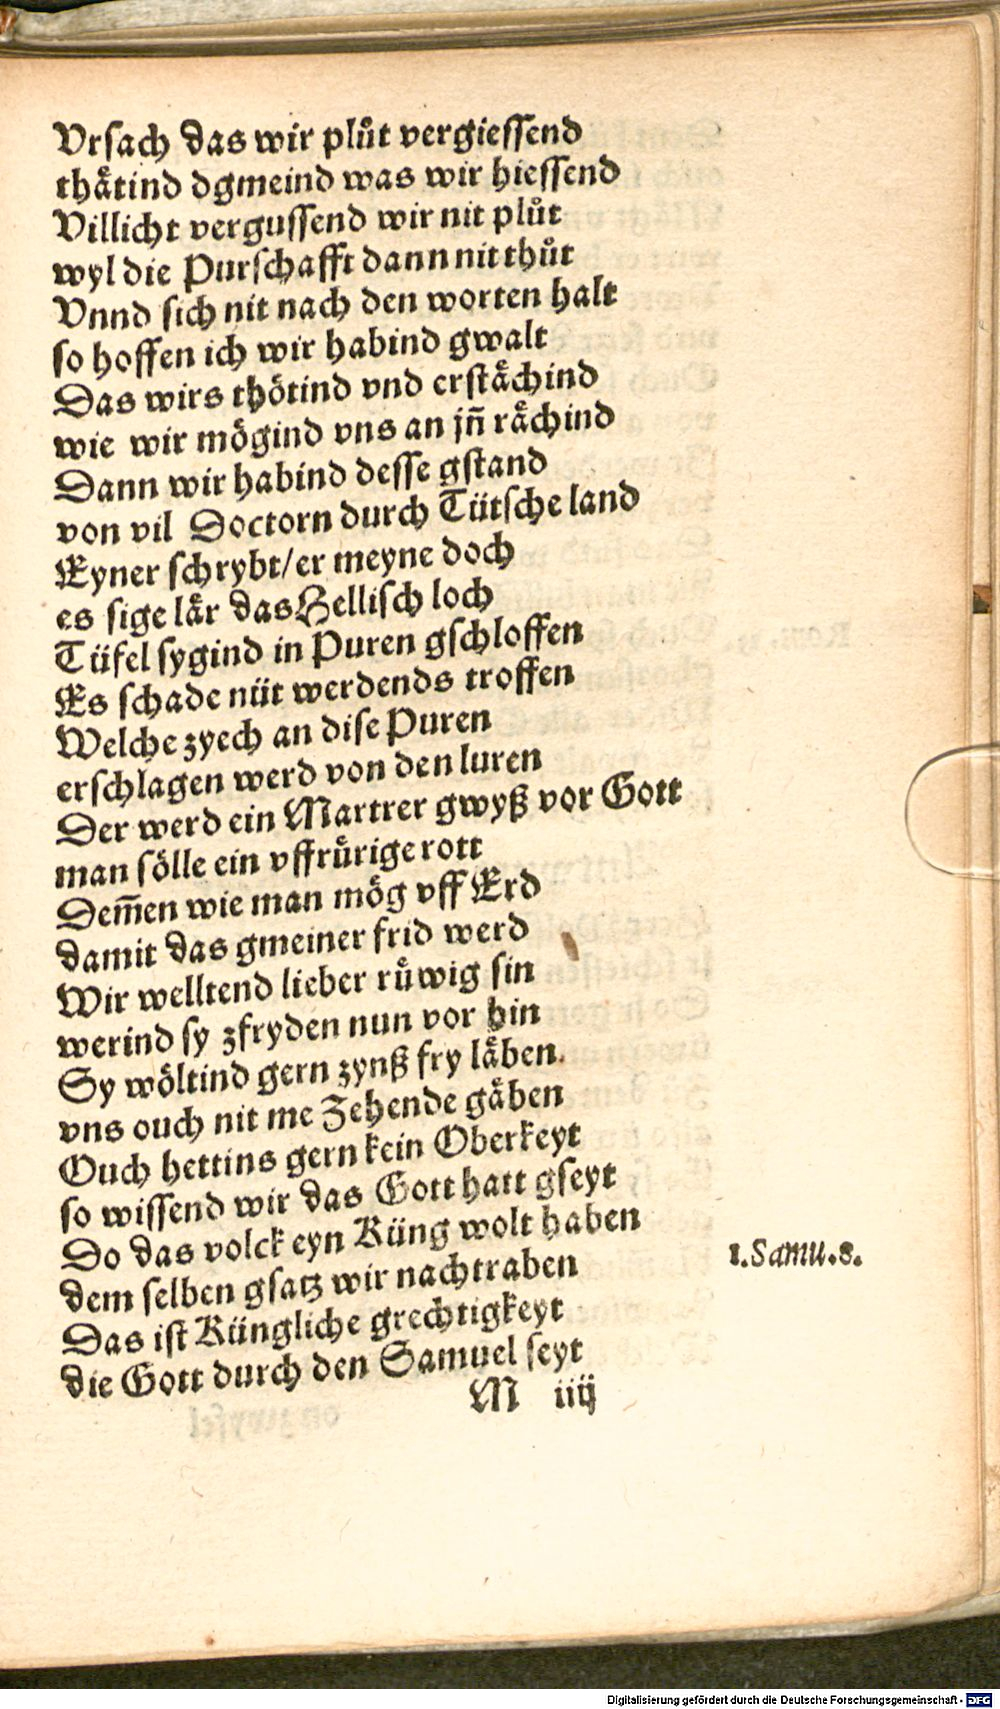 Vrsach das wir plůt vergiessend
thaͤtind dgmeind was wir hiessend
Villicht vergussend wir nit plůt
wyl die Purschafft dann nit thůt
Vnnd sich nit nach den worten halt
so hoffen ich wir habind gwalt
Das wirs thoͤtind vnd erstaͤchind
wie wir moͤgind vns an jn̄ raͤchind
Dann wir habind desse gstand
von vil Doctorn durch Tütsche land
Eyner schrybt/er meyne doch
es sige laͤr das Hellisch loch
Tüfel sygind in Puren gschloffen
Es schade nüt werdends troffen
Welche zyech an dise Puren
erschlagen werd von den luren
Der werd ein Martrer gwyß vor Gott
man soͤlle ein vffruͤrige rott
Dem̄en wie man moͤg vff Erd
damit das gmeiner frid werd
Wir welltend lieber ruͤwig sin
werind sy zfryden nun vor hin
Sy woͤltind gern zynß fry laͤben.
vns ouch nit me Zehende gaͤben
Ouch hettins gern kein Oberkeyt
so wissend wir das Gott hatt gseyt
Do das volck eyn Küng wolt haben
dem selben gsatz wir nachtraben
Das ist Küngliche grechtigkeyt
die Gott durch den Samuel seyt
1.Samu.8.
M iiij
Digitalisierung gefördert durch die Deutsche Forschungsgemeinschaft - DFG